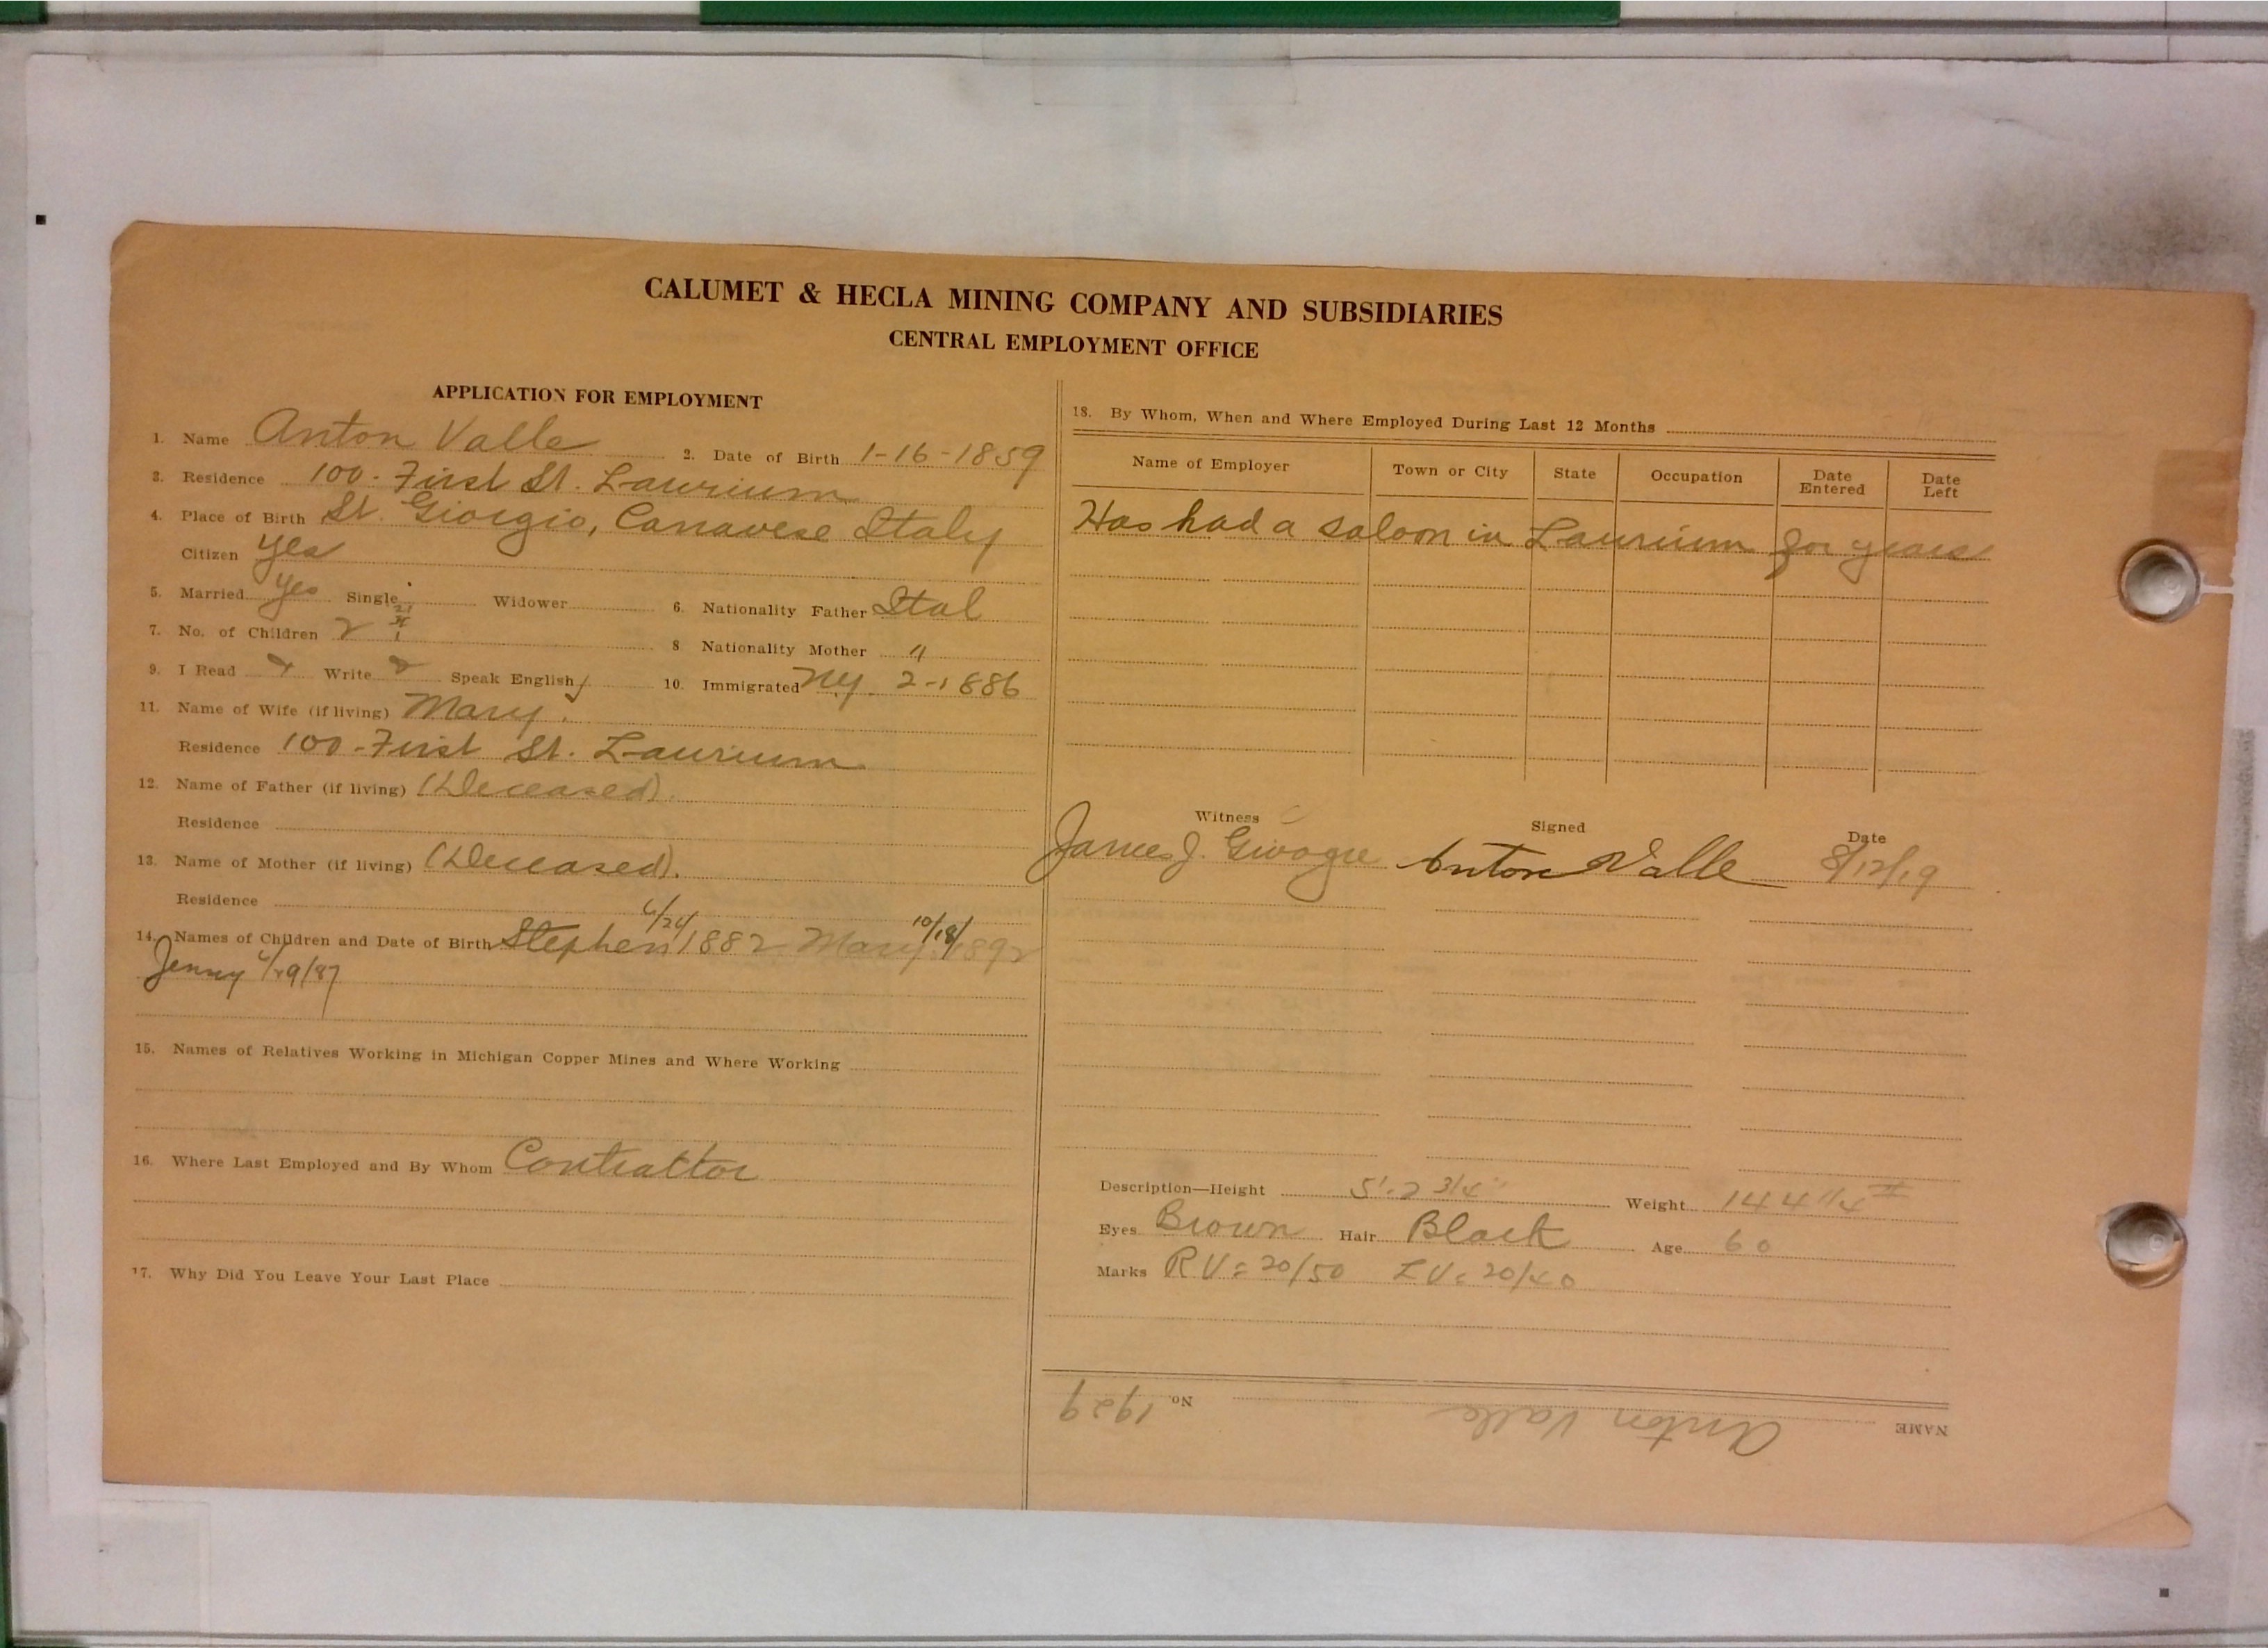 CALUMET & HECLA MINING COMPANY AND SUBSIDIARIES
CENTRAL EMPLOYMENT OFFICE
APPLICATION FOR EMPLOYMENT
1. Name Anton Valle 2. Date of Birth 1-16-1859
3. Residence 100-First St. Laurium
4. Place of Birth St. Giorgio, Canavese Italy
Citizen Yes
5. Married Yes Single Widower 6. Nationality Father Ital
7. No. of Children 2 8. Nationality Mother "
9. I Read Write Speak English 10. Immigrated NY. 2-1886
11. Name of Wife (if living) Mary.
Residence 100-First St. Laurium
12. Name of Father (if living) (Deceased).
Residence
13. Name of Mother (if living) (Deceased).
Residence
14. Names of Children and Date of Birth Stephen 1882 Mary 10/18/1892
Jenny
15. Names of Relatives Working in Michigan Copper Mines and Where Working
16. Where Last Employed and By Whom Contrattor
17. Why Did You Leave Your Last Place
18. By Whom, When and Where Employed During Last 12 Months
Name of Employer Town or City State Occupation Date Entered Date Left
Has had a saloon in Laurium for years
Witness Signed Date
James J. Anton Valle 8/12/19
Description—Height 5'-2 3/4" Weight 144
Eyes Brown Hair Black Age 60
Marks RV = 20/50 LV = 20/40
NAME Anton Valle No. 1929